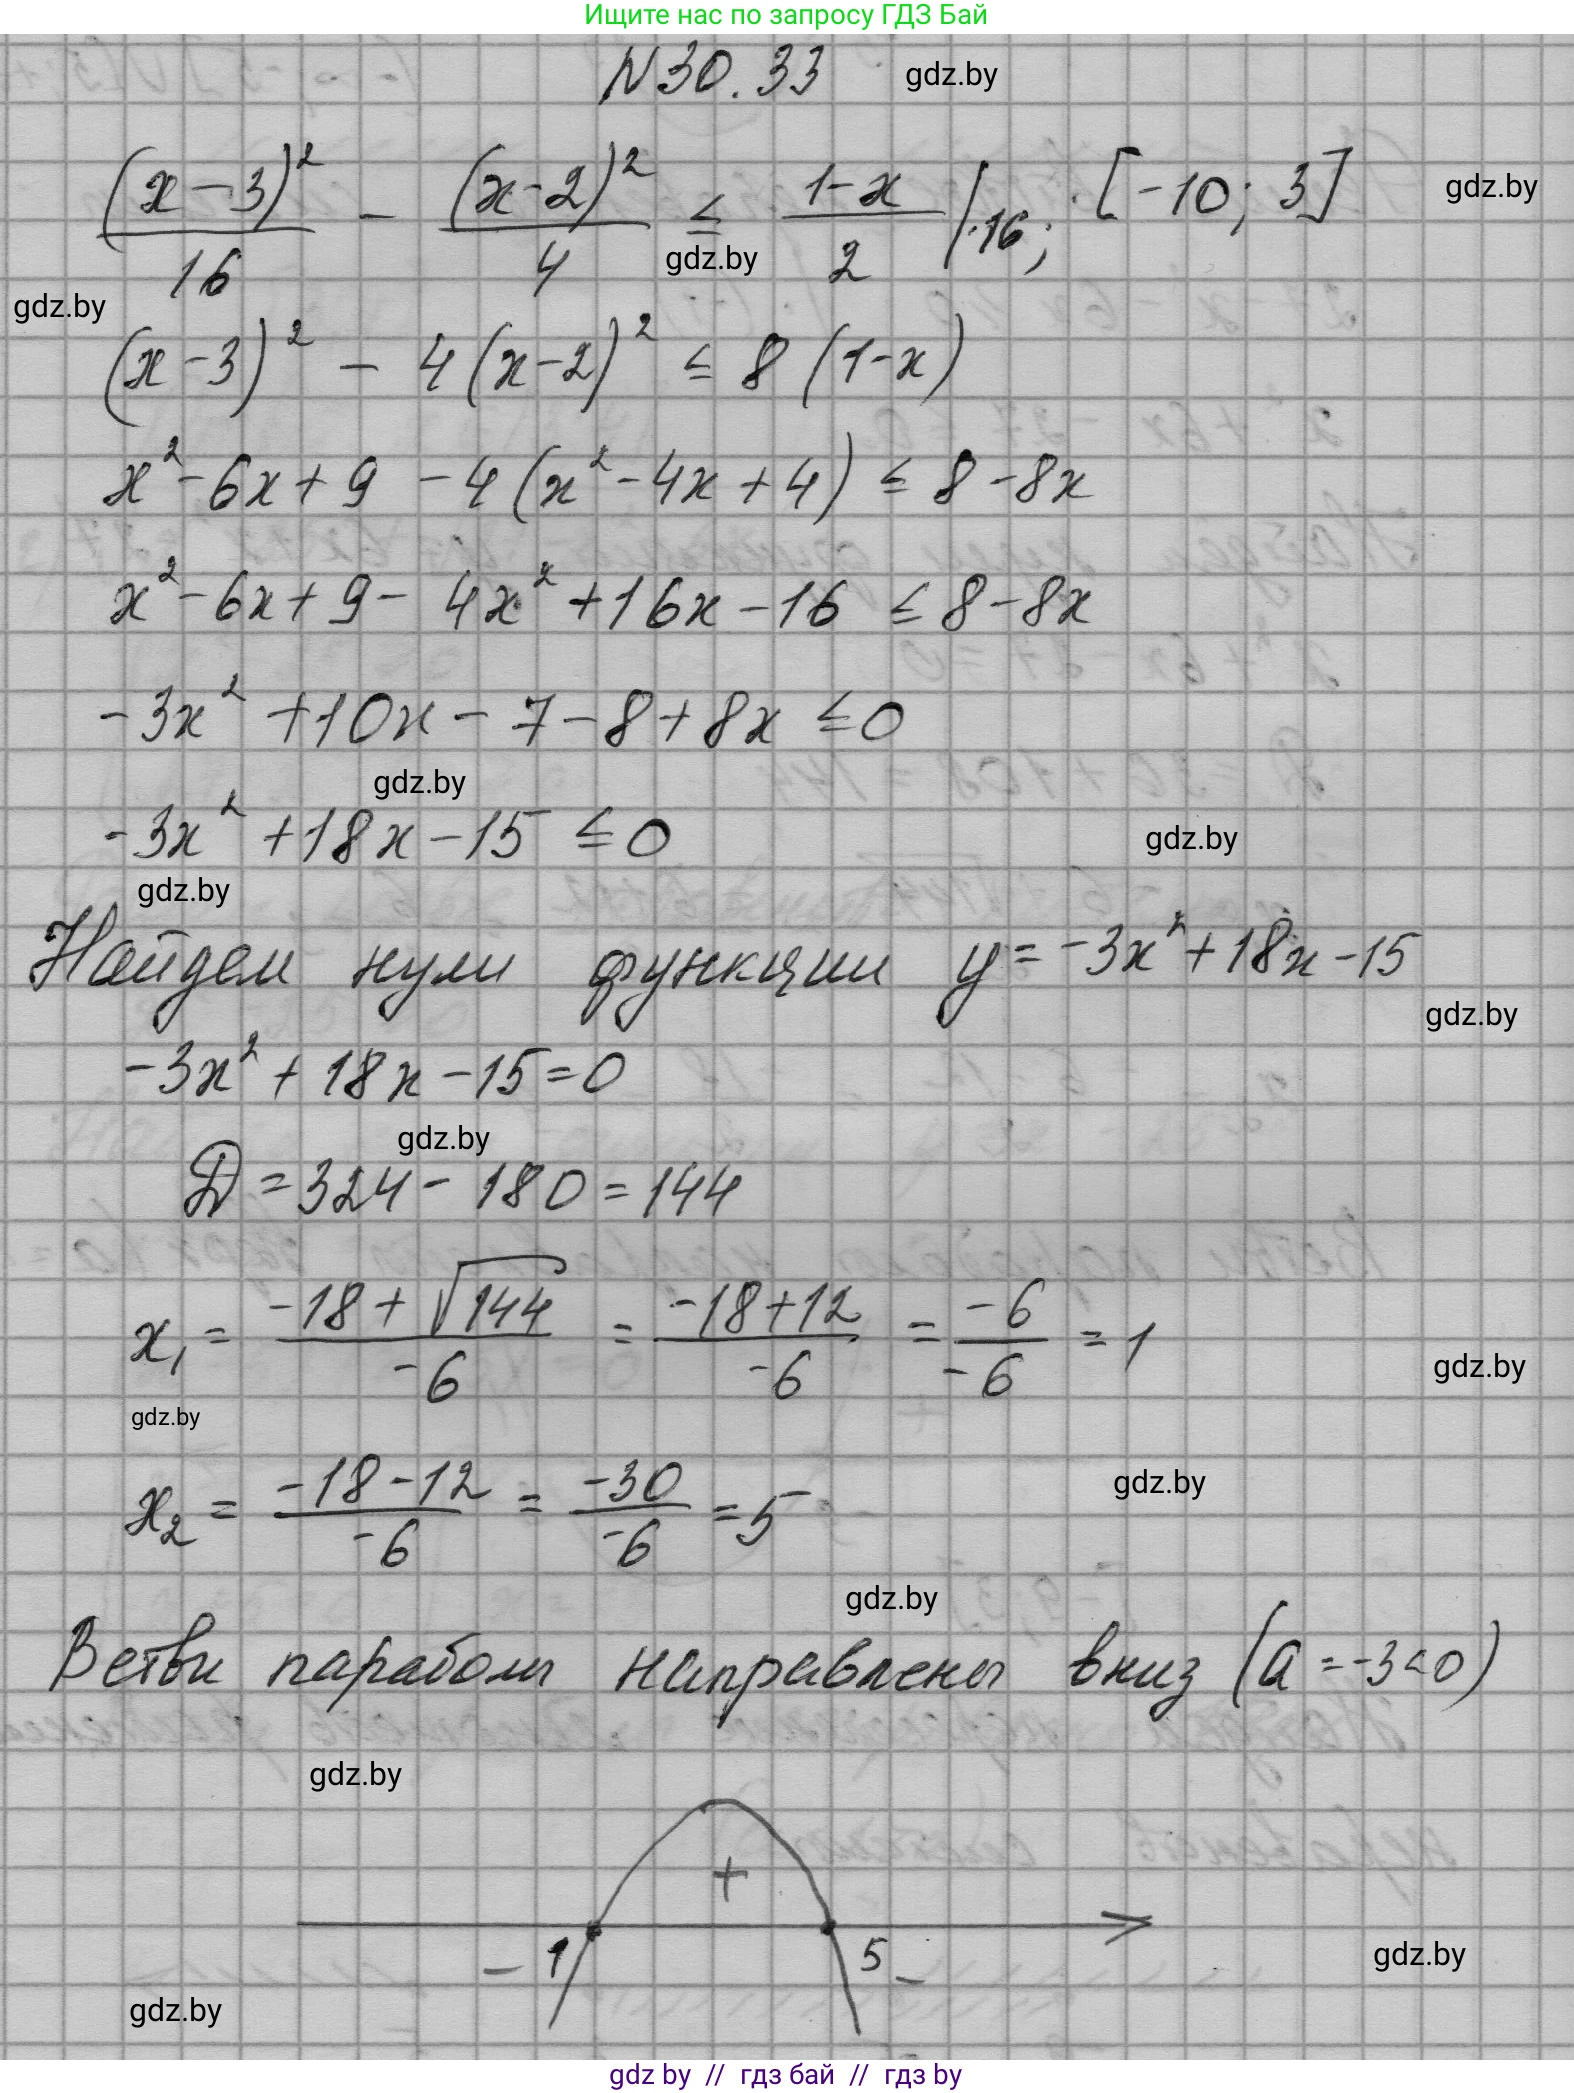 Ищите нас по запросу ГДЗ Бай
N 30.33 gdz.by
(x-3)²/16 - (x-2)²/4 ≤ (1-x)/2 |·16; [-10; 3] gdz.by
gdz.by
gdz.by
(x-3)² - 4(x-2)² ≤ 8(1-x)
x²-6x+9 -4(x²-4x+4) ≤ 8-8x
x²-6x+9- 4x²+16x-16 ≤ 8-8x
-3x²+10x-7-8+8x ≤0
gdz.by
-3x²+18x-15 ≤0
gdz.by
gdz.by
Найдем нули функции y=-3x²+18x-15
gdz.by
-3x²+18x-15=0
gdz.by
D=324-180=144
x₁= (-18+√144)/-6 = (-18+12)/-6 = -6/-6 =1
gdz.by
gdz.by
x₂= (-18-12)/-6 = -30/-6 =5
gdz.by
gdz.by
Ветви параболы направлены вниз (a=-3<0)
gdz.by
+
- 1 5 -
gdz.by
gdz.by
gdz by // гдз бай // гдз by